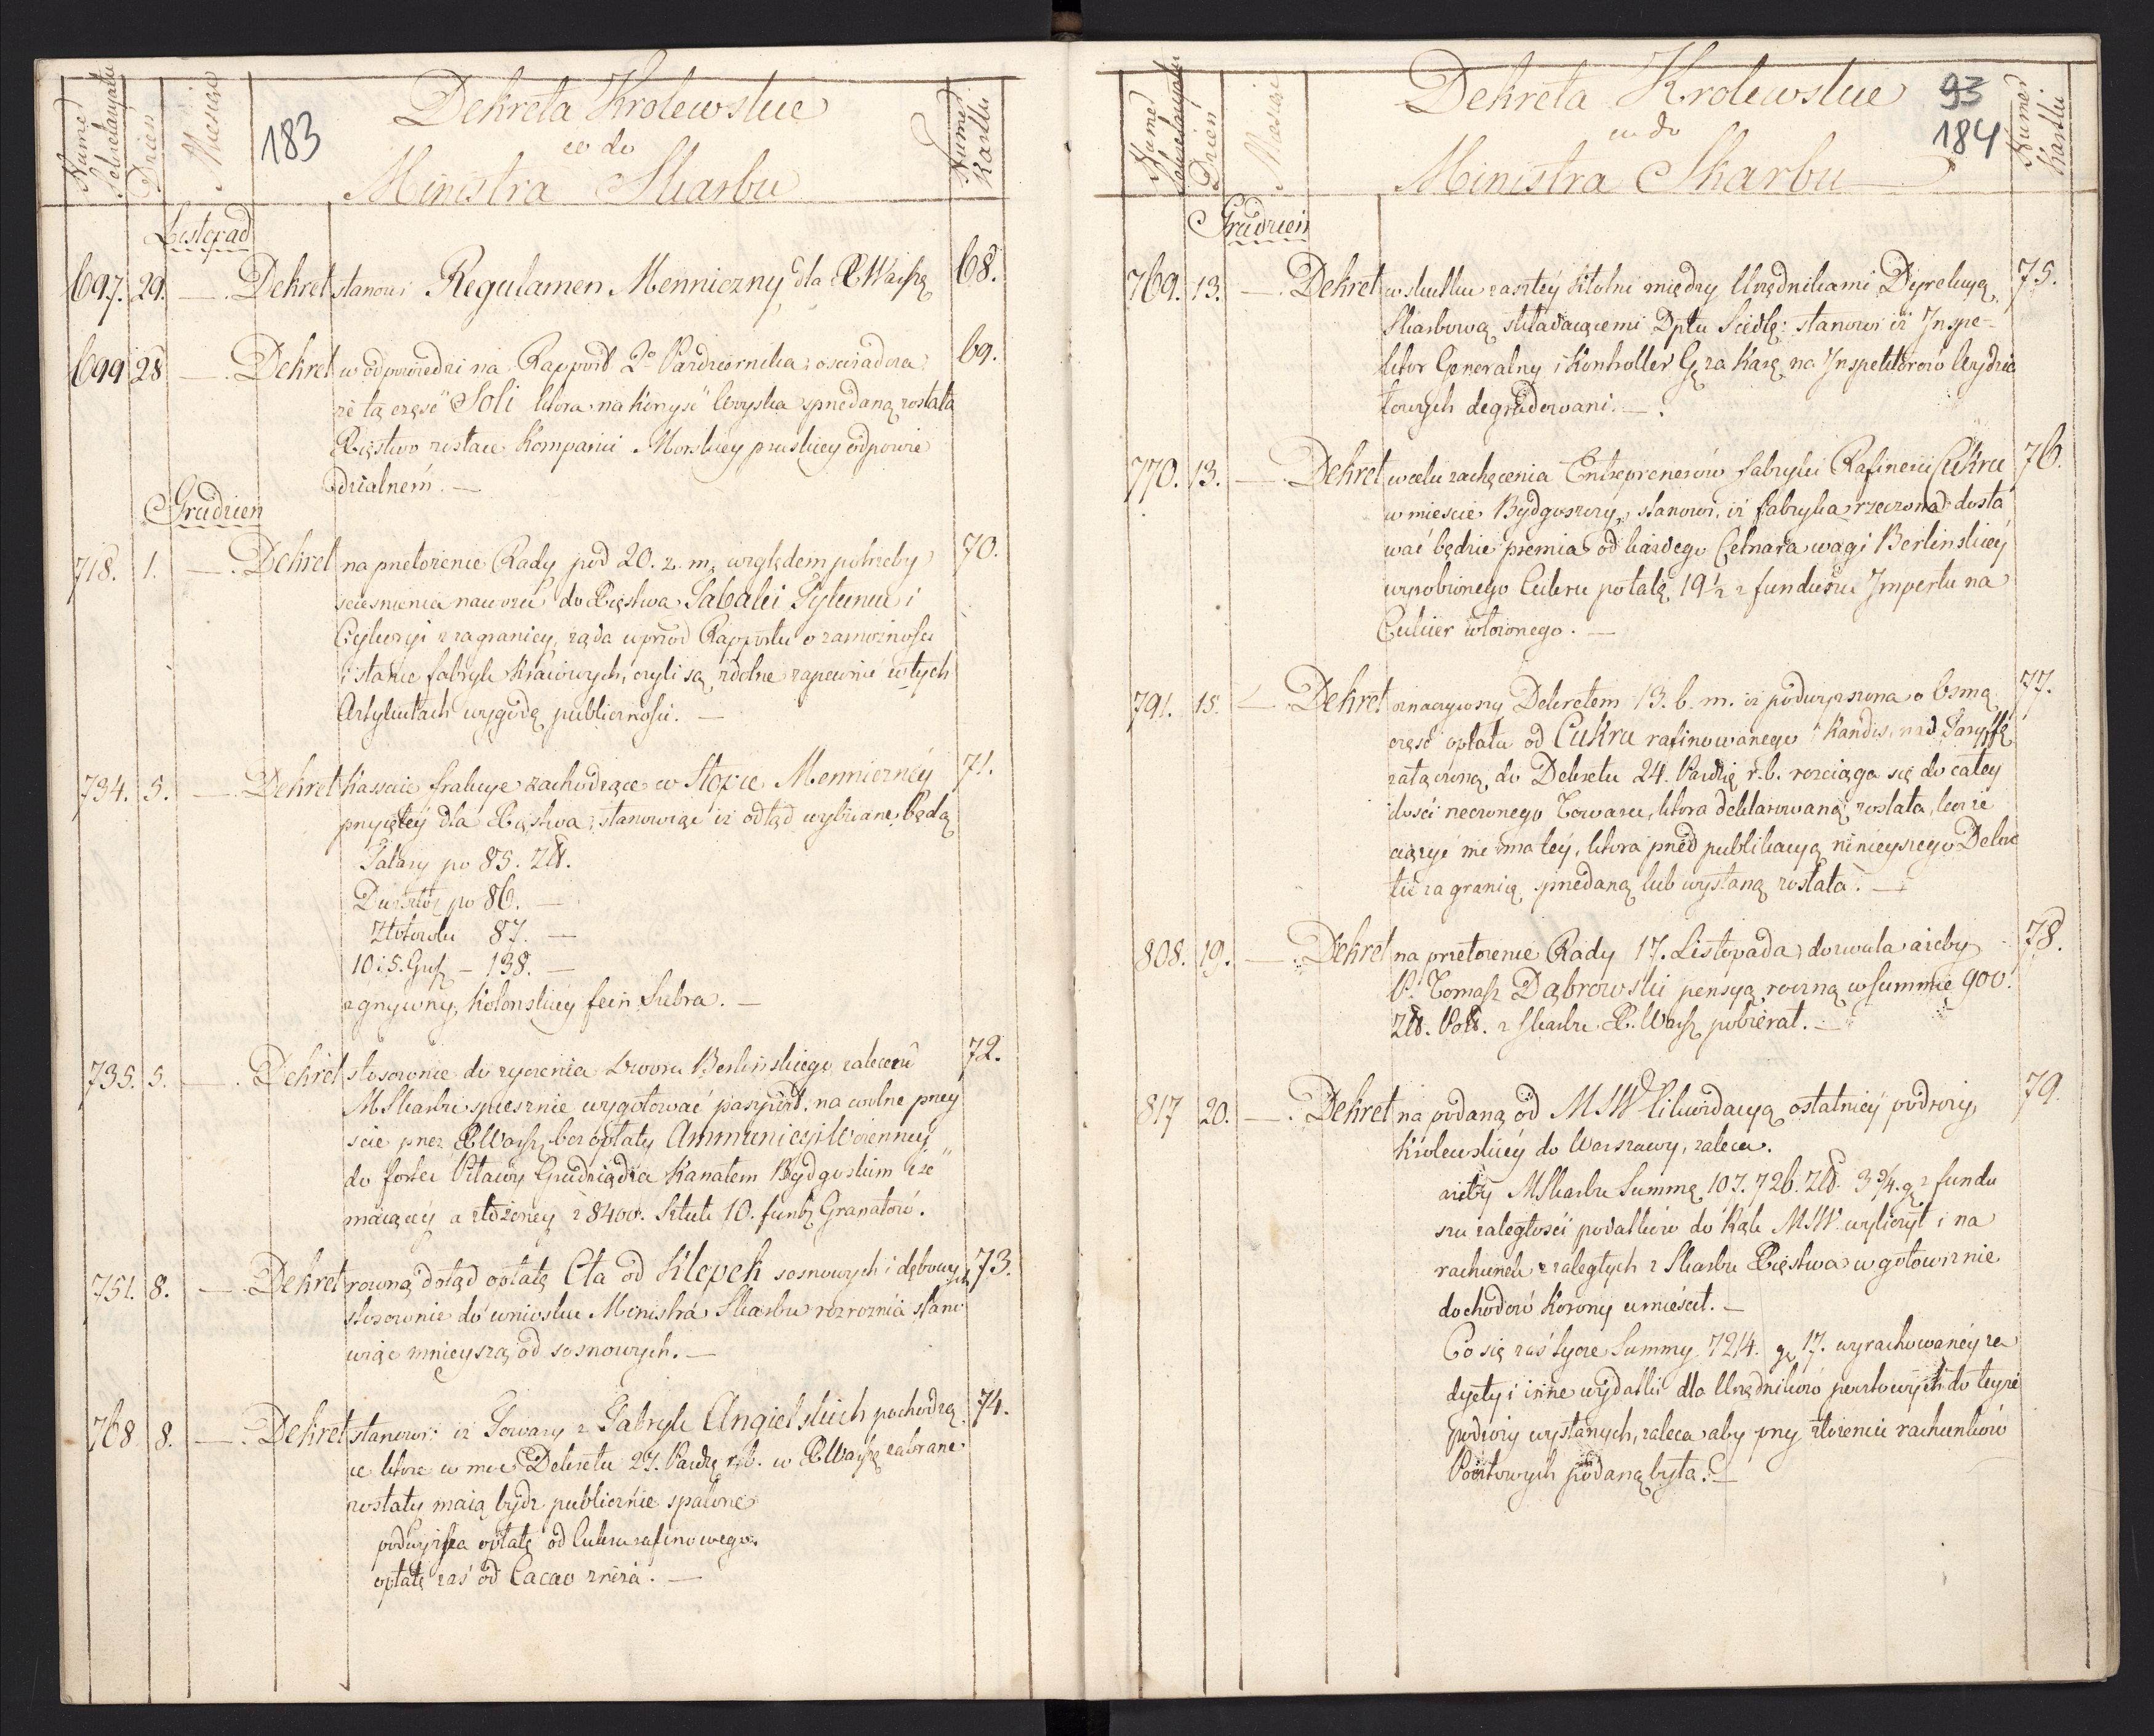 Numer Sekretaryatu
Dzień
Miesiąc
183
Dekreta Krolewskie
co do
Ministra Skarbu
Numer Kartki
Listopad
697. 29. — Dekret stanowi Regulamen Menniczny dla X Warsz. 68.
699 28 — Dekret w odpowiedzi na Rapport 2° Pazdziernika, oswiadcza 69.
że ta część Soli ktora na korzyść Woyska sprzedaną została
Xięstwo zostaie Kompanii Morskiey pruskiey odpowie
dzialnem. —
Grudzien
718. 1. — Dekret na przełożenie Rady pod 20. z. m. względem potrzeby 70.
sciesnienia nawozu do Xięstwa Tabaki Tytuniu i
Cykoryi z zagranicy, żąda wprzod Rapportu o zamożności
i stanie fabryk kraiowych, czyli są zdolne zapewnić w tych
Artykułach wygodę publiczności. —
734. 5. — Dekret kassuie frakcye zachodzące w Stopie Menniczney 71.
przyiętéy dla Xięstwa, stanowiąc iż odtąd wybiiane będą
Talary po 85. Zł.
Dwuzłot. po 86. —
Złotowki 87. —
10 i 5. Grosz. — 138. —
z grzywny Kolonskiey fein srebra. —
735. 5. — Dekret stosownie do życzenia Dworu Berlinskiego zaleca 72.
M Skarbu spiesznie wygotować paszport. na wolne przey
scie przez X Warsz. bez opłaty Ammunicyi Woienney
do fortec Piławy Grudziądza Kanałem Bydgoskim iść
maiącey a złożoney z 8400. Sztuk 10. funt. Granatów.
751. 8. — Dekret rowną dotąd opłatę Cła od Klepek sosnowych i dębowych 73.
stosownie do wniosku Ministra Skarbu rozroznia stano
wiąc mnieyszą od sosnowych. —
768 8. — Dekret stanowi: iż Towary z Fabryk Angielskich pochodzą 74.
ce które w moc Dekretu 27. Pazdz. r. b. w X Warsz. zabrane
zostały maią bydz publicznie spalone
podwyższa opłatę od Cukru rafinowego.
opłatę zaś od Cacao zniża. —
Numer Sekretaryatu
Dzień
Miesiąc
Dekreta Krolewskie
co do
Ministra Skarbu
93
184
Numer Kartki
Grudzień
769. 13. — Dekret w skutku zaszłéy kłotni między Urzędnikami Dyrekcyą 75.
Skarbową składaiącemi Dptu Siedlę: stanowi iż Inspe-
ktor Generalny i Kontroller G. za karę na Inspektorów Wydzia
łowych degradowani. —
770. 13. — Dekret w celu zachęcenia Entreprenerów fabryki Rafinerii Cukru 76.
w mieście Bydgoszczy, stanowi, iż fabryka rzeczona dosta
wać będzie premia od każdego Cetnara wagi Berlinskiéy
wyrobionego Cukru po talą. 19½ z funduszu Impostu na
Cukier włożonego. —
791. 15. — Dekret oznaczywszy Dekretem 13. b. m. iż podwyższona o osmą 77.
część opłata od Cukru rafinowanego i Kandis. nad Taryffą
załączoną do Dekretu 24. Pazdz. r. b. rosciąga się do całey
ilości rzeczonego Towaru, która deklarowaną została, lecz że
ciążyć nie ma téy, która przed publikacyą ninieyszego Dekre
tu za granicę sprzedaną lub wysłaną została. —
808. 19. — Dekret na przełożenie Rady 17. Listopada dozwala ażeby 78.
P. Tomasz Dąbrowski pensyą roczną w summie 900.
Zł. Pol. z Skarbu X. Warsz. pobierał. —
817 20. — Dekret na podaną od M S W Likwidacyą ostatniéy podroży 79.
Królewskiéy do Warszawy, zaleca.
ażeby M Skarbu Summę 107.726. Zł. 3¾. g. z fundu
szu zaległości podatków do Kąk M S W. wyliczył i na
rachunek zaległych z Skarbu Xięstwa w gotowiznie
dochodow Korony umieścił. —
Co się zaś tycze Summy 7214. g. 17. wyrachowanéy za
dyety i inne wydatki dla Urzędników pocztowych do teyże
podroży wysłanych, zaleca aby przy złożeniu rachunków
Pocztowych podaną była. —